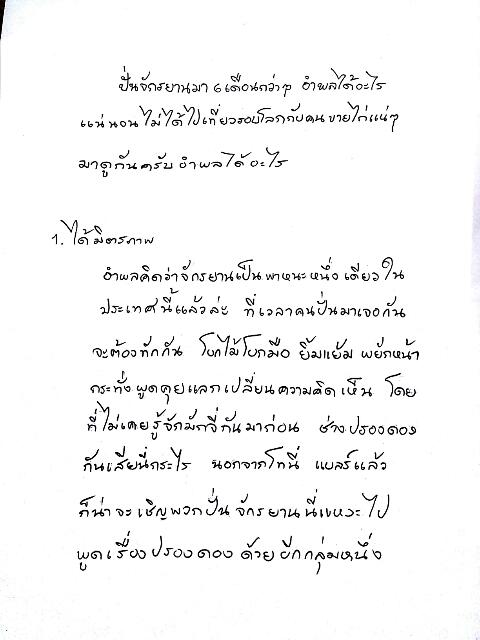 ปั่นจักรยานมา ๖ เดือนกว่าๆ อำพลได้อะไร
แน่นอนไม่ได้ไปเที่ยวรอบโลกกับคนขายไก่แน่ๆ
มาดูกันครับ อำพลได้อะไร
1. ได้มิตรภาพ
อำพลคิดว่าจักรยานเป็นพาหนะหนึ่งเดียวใน
ประเทศนี้แล้วล่ะ ที่เวลาคนปั่นมาเจอกัน
จะต้องทักกัน โบกไม้โบกมือ ยิ้มแย้ม พยักหน้า
กระทั่งพูดคุยแลกเปลี่ยนความคิดเห็น โดย
ที่ไม่เคยรู้จักมักจี่กันมาก่อน ช่างปรองดอง
กันเสียนี่กระไร นอกจากโทนี่ แบลร์แล้ว
ก็น่าจะเชิญพวกปั่นจักรยานนี่แหละไป
พูดเรื่องปรองดองด้วยอีกกลุ่มหนึ่ง